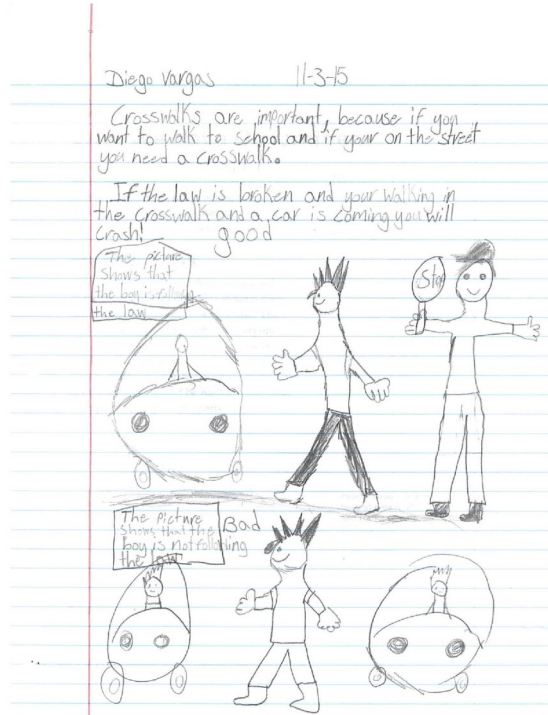 Diego Vargas 11-3-15
Crosswalks are important, because if you
want to walk to school and if your on the street
you need a crosswalk.
If the law is broken and your walking in
the crosswalk and a car is coming you will
crash!
good
The picture
shows that
the boy is
the law
Stop
The picture
shows that the
boy is not following
the law
Bad